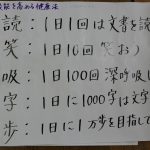 を高める健康法
読：1日1回は文書を読
笑：1日10回笑お)
吸：1日100回深呼吸し
字：1日に1000字は文字
歩：1日に1万歩を目指して